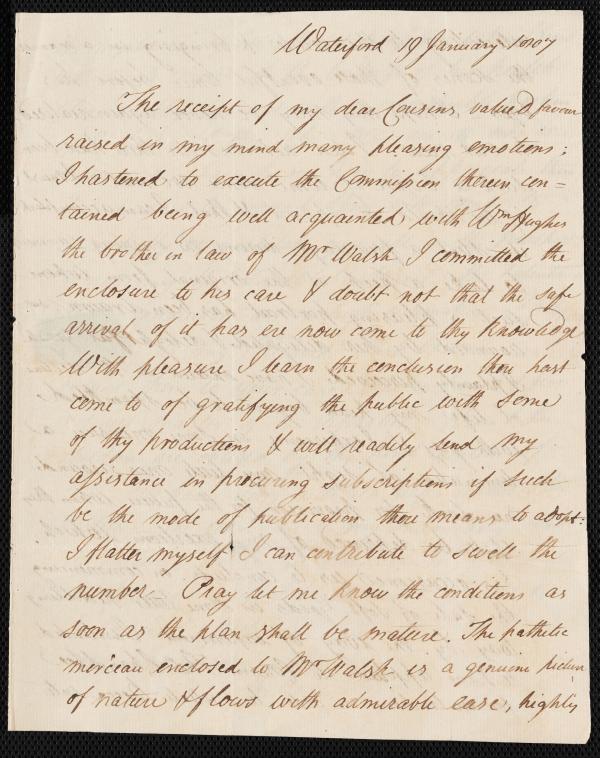 Waterford 19 January 1807
The receipt of my dear Cousins valued favour
raised in my mind many pleasing emotions;
I hastened to execute the Commission therein con=
tained being well acquainted with Wm Hughes
the brother in law of Mr Walsh I committed the
enclosure to his care & doubt not that the safe
arrival of it has ere now come to thy knowledge
With pleasure I learn the conclusion thou hast
come to of gratifying the public with some
of thy productions & will readily lend my
assistance in procuring subscriptions if such
be the mode of publication thou means to adopt:
I flatter myself I can contribute to swell the
number – Pray let me know the conditions as
soon as the plan shall be mature. The pathetic
morceau enclosed to Mr Walsh is a genuine picture
of nature & flows with admirable ease, highly